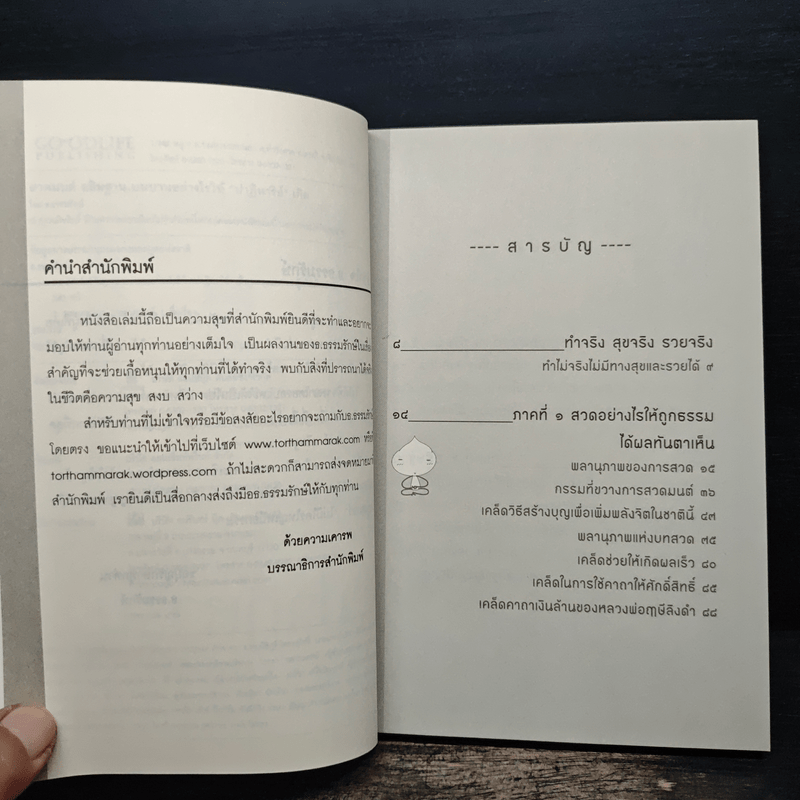 คำนำสำนักพิมพ์
หนังสือเล่มนี้ถือเป็นความสุขที่สำนักพิมพ์ยินดีที่จะทำและอยากจะ
มอบให้ท่านผู้อ่านทุกท่านอย่างเต็มใจ เป็นผลงานของธ.ธรรมรักษ์ในเรื่อง
สำคัญที่จะช่วยเกื้อหนุนให้ทุกท่านที่ได้ทำจริง พบกับสิ่งที่ปรารถนาได้
ในชีวิตคือความสุข สงบ สว่าง
สำหรับท่านที่ไม่เข้าใจหรือมีข้อสงสัยอะไรอยากจะถามกับธ.ธรรมรักษ์
โดยตรง ขอแนะนำให้เข้าไปที่เว็บไซต์ www.torthammarak.com หรือ
torthammarak.wordpress.com ถ้าไม่สะดวกก็สามารถส่งจดหมายมา
สำนักพิมพ์ เรายินดีเป็นสื่อกลางส่งถึงมือธ.ธรรมรักษ์ให้กับทุกท่าน
ด้วยความเคารพ
บรรณาธิการสำนักพิมพ์
---- ส า ร บั ญ ----
๘____________________ทำจริง สุขจริง รวยจริง
ทำไม่จริงไม่มีทางสุขและรวยได้ ๙
๑๔____________ภาคที่ ๑ สวดอย่างไรให้ถูกธรรม
ได้ผลทันตาเห็น
พลานุภาพของการสวด ๑๕
กรรมที่ขวางการสวดมนต์ ๓๖
เคล็ดวิธีสร้างบุญเพื่อเพิ่มพลังจิตในชาตินี้ ๔๓
พลานุภาพแห่งบทสวด ๗๕
เคล็ดช่วยให้เกิดผลเร็ว ๘๐
เคล็ดในการใช้คาถาให้ศักดิ์สิทธิ์ ๘๕
เคล็ดคาถาเงินล้านของหลวงพ่อฤๅษีลิงดำ ๘๘